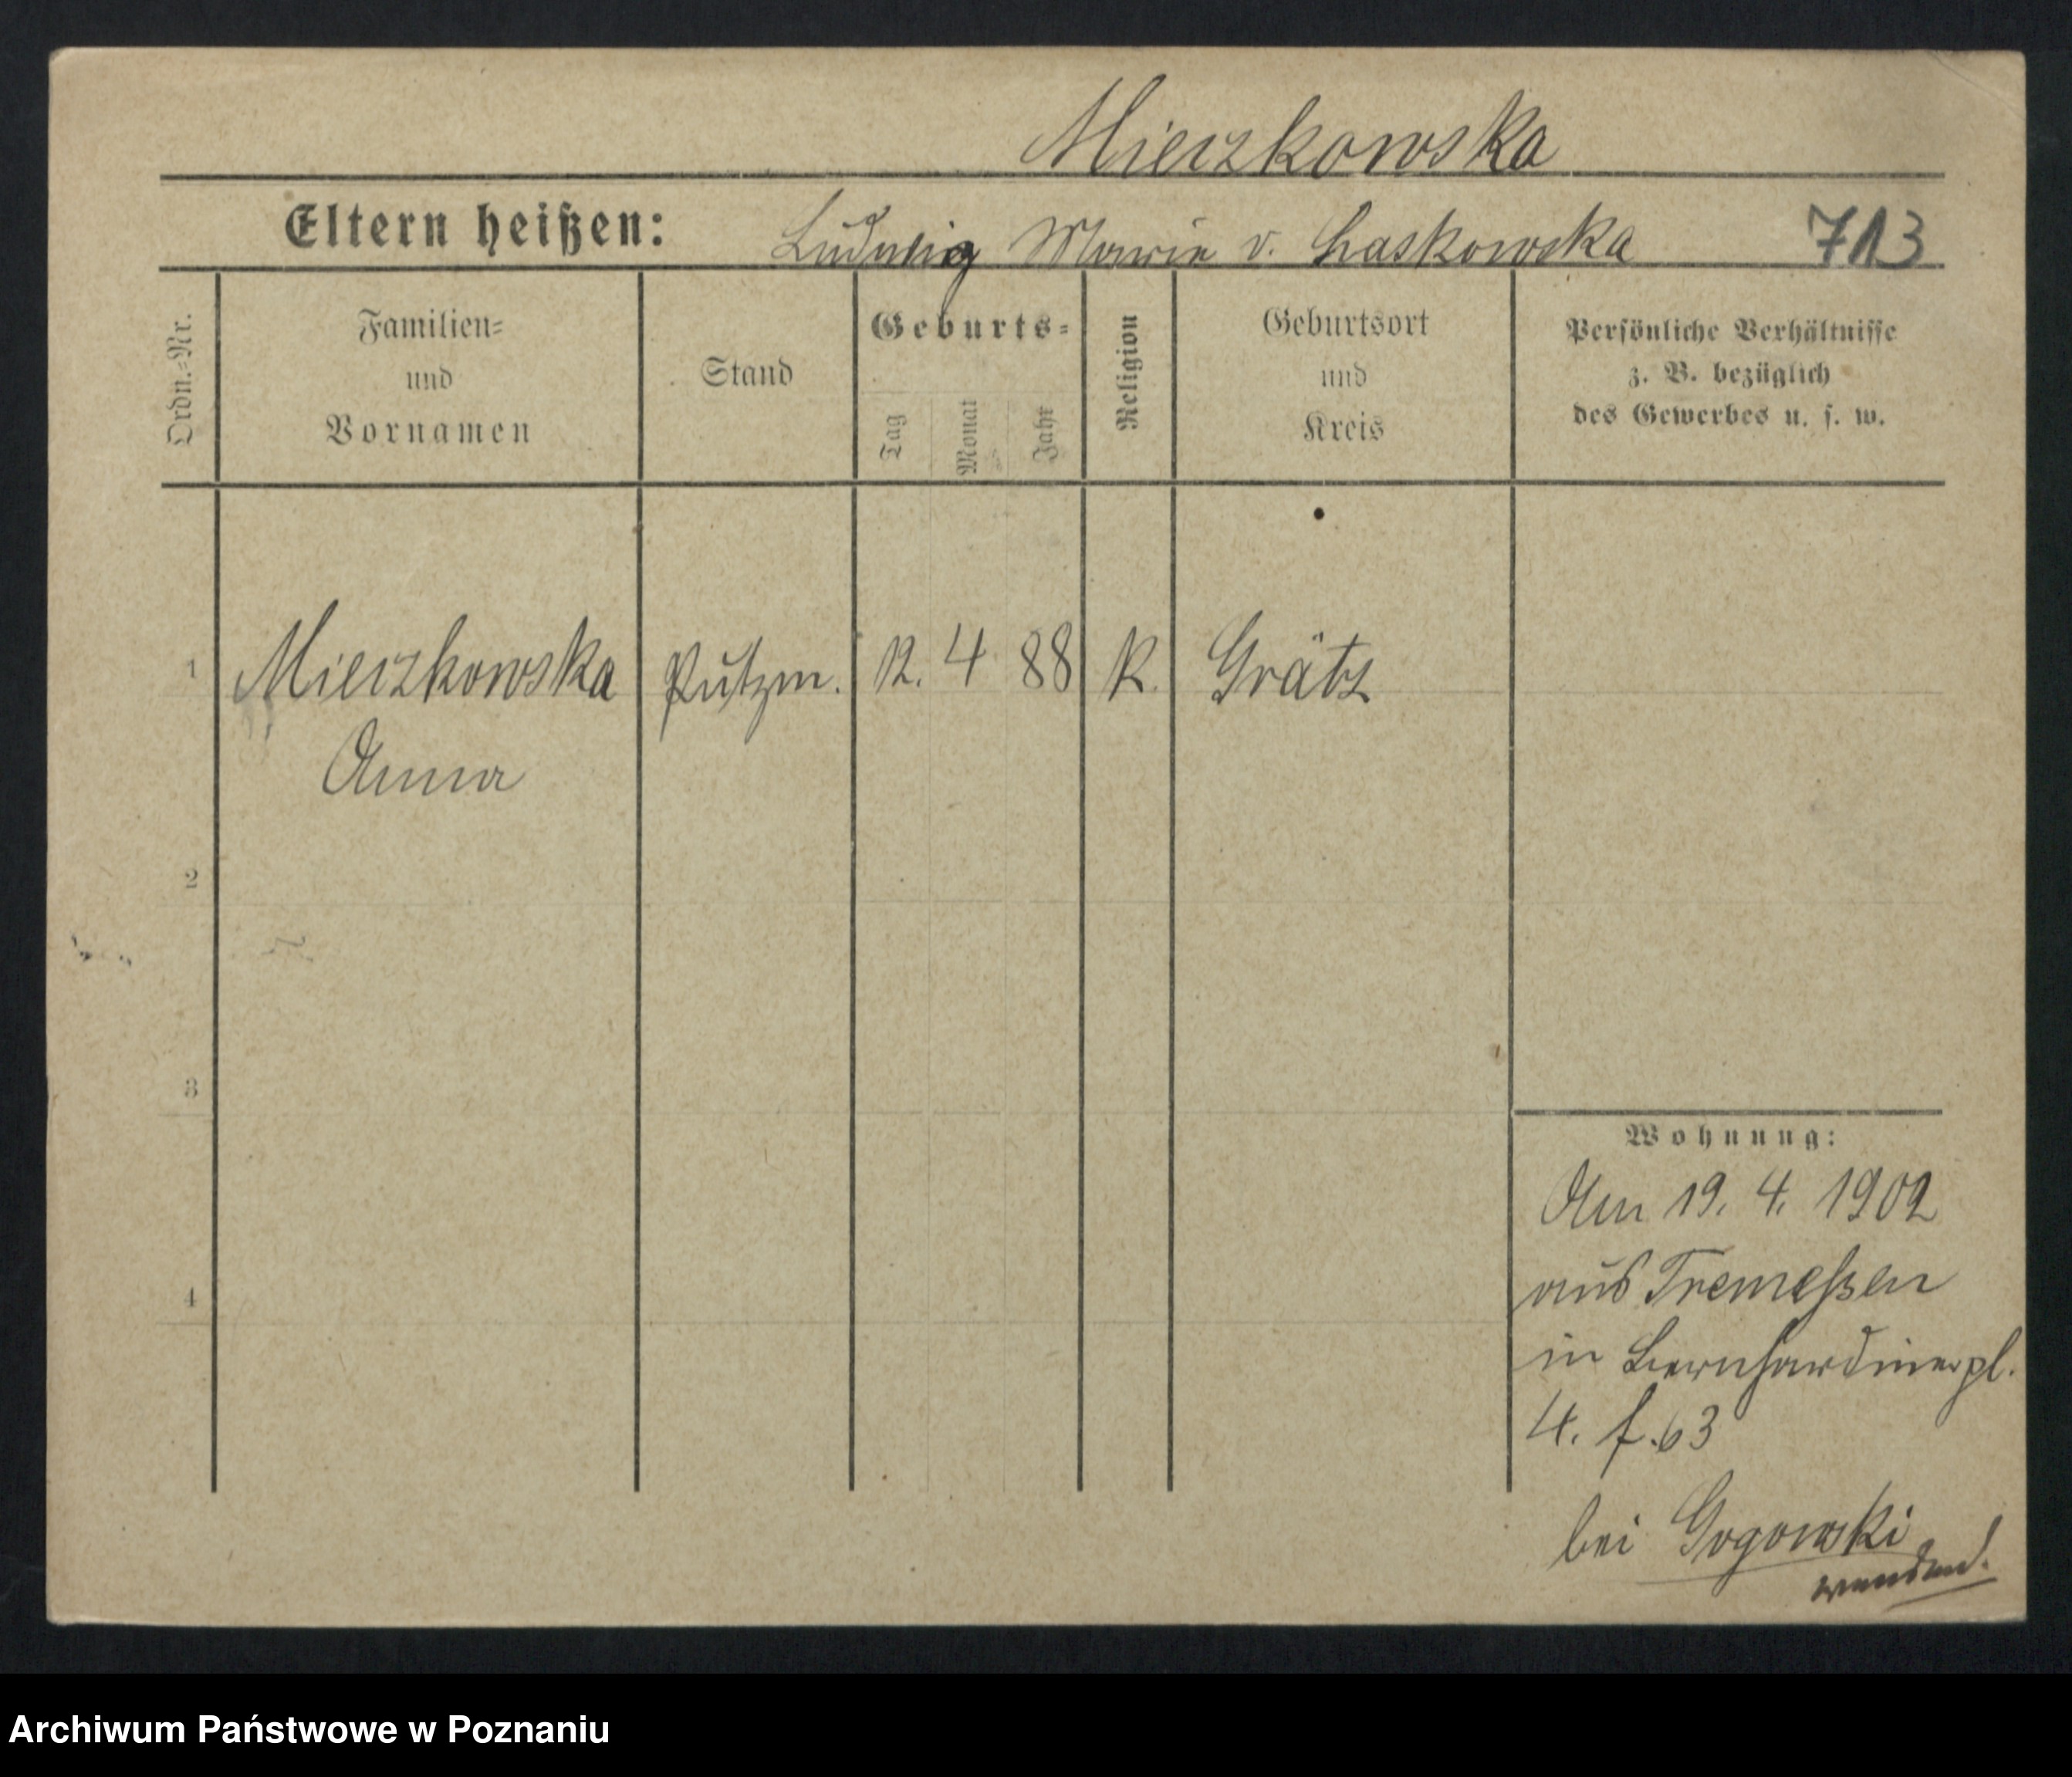 Mieczkowska
Eltern heißen: Ludwig Marie v. Laskowska 713
Ordn.-Nr.
Familien-
und
Vornamen
Stand
Geburts-
Tag
Monat
Jahr
Religion
Geburtsort
und
Kreis
Persönliche Verhältnisse
z. B. bezüglich
des Gewerbes u. s. w.
1 Mieczkowska Putzm. 12. 4 88 K. Grätz
Anna
2
3
4
Wohnung:
Am 19. 4. 1902
aus Tremeßen
in Bernhardinerpl.
4. f. 63
bei Gogowski
wenden!
Archiwum Państwowe w Poznaniu